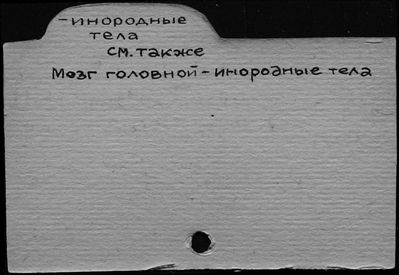 -инородные
тела
см. также
Мозг головной - инородные тела